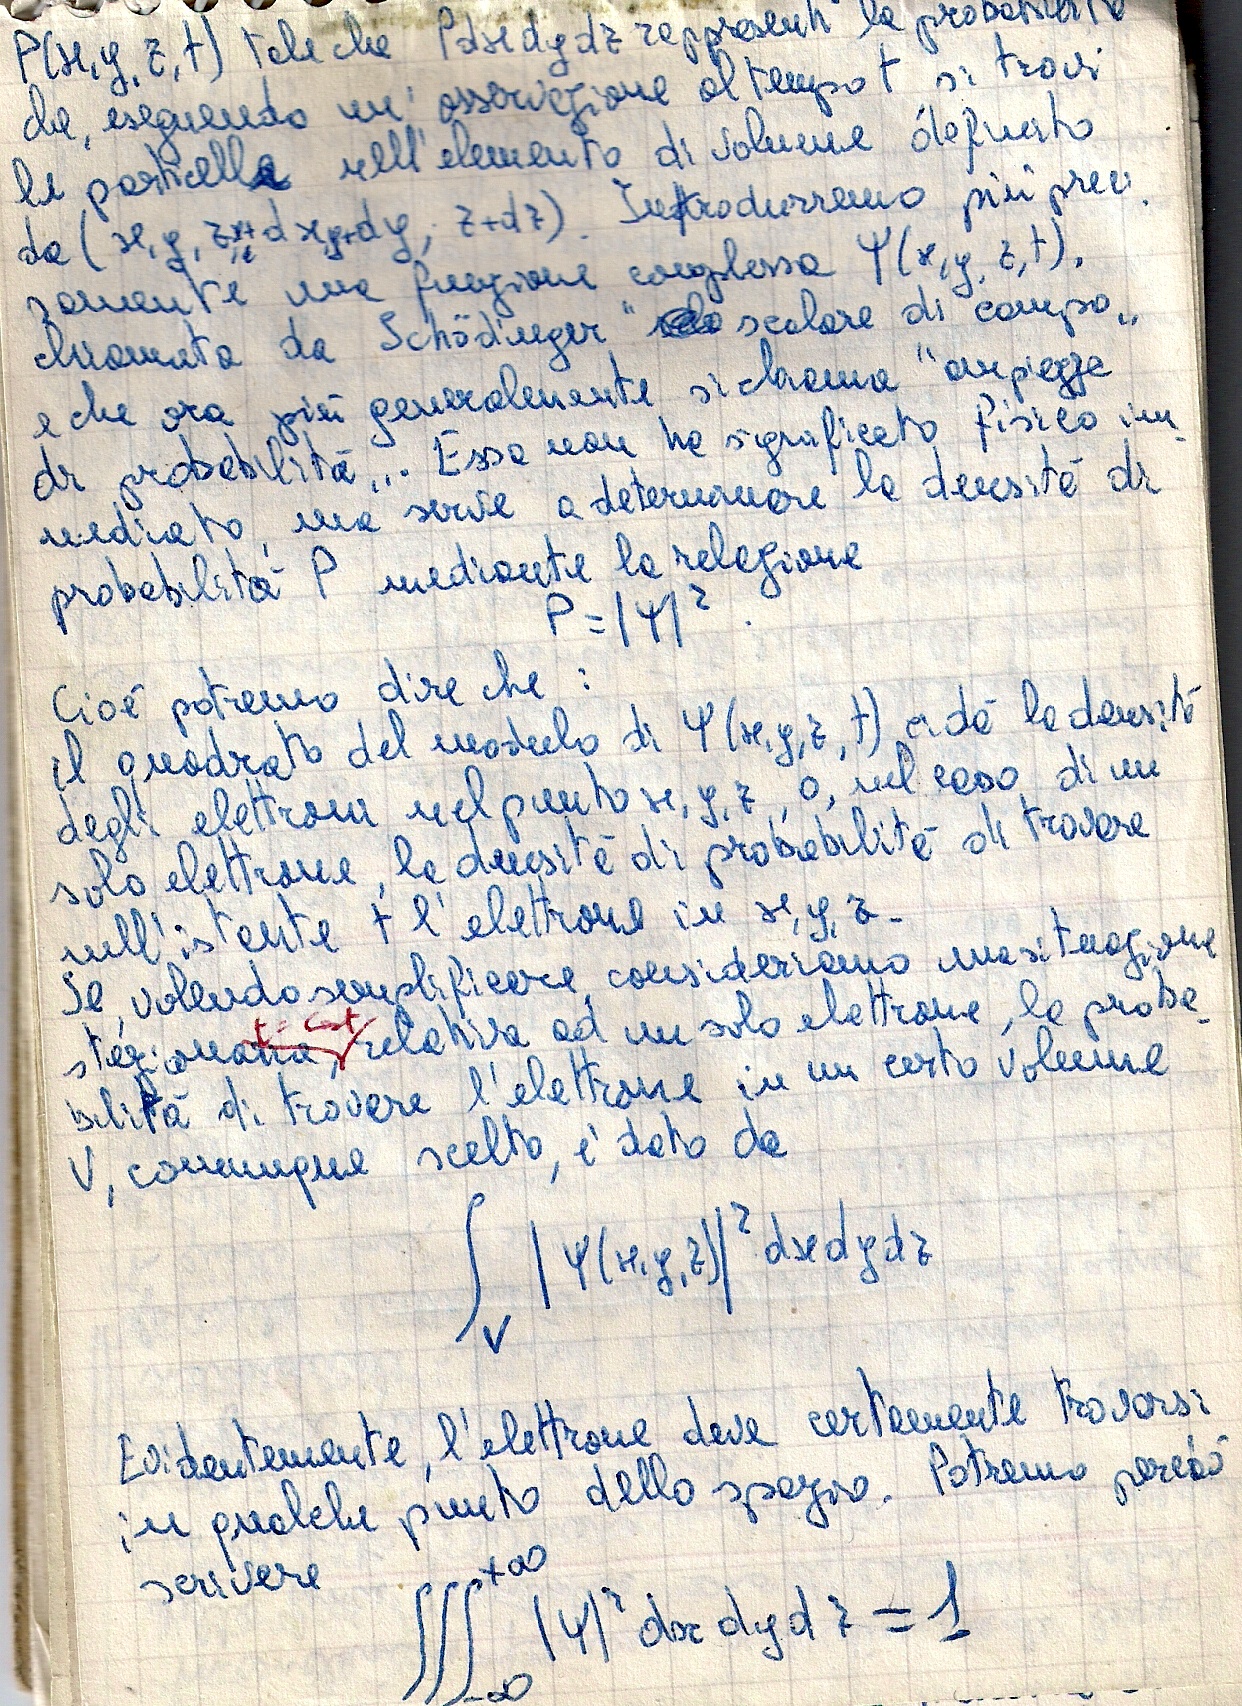 P(x,y,z,t) tale che Pdxdydz rappresenti la probabilità
che, eseguendo un' osservazione al tempo t si trovi
la particella nell'elemento di volume definito
da (x,y,z,x+dx,y+dy, z+dz). Introdurremo più preci
samente una funzione complessa Ψ(x,y,z,t),
chiamata da Schödinger "scalare di campo"
e che ora più generalmente si chiama "ampiezza
di probabilità". Essa non ha significato fisico im-
mediato, ma serve a determinare la densità di
probabilità P mediante la relazione
P=|Ψ|².
Cioè potremo dire che:
il quadrato del modulo di Ψ(x,y,z,t) ci dà la densità
degli elettroni nel punto x,y,z, o, nel caso di un
solo elettrone, la densità di probabilità di trovare
nell'istante t l'elettrone in x,y,z.
Se, volendo semplificare, consideriamo una situazione
stazionaria, relativa ad un solo elettrone, la proba-
bilità di trovare l'elettrone in un certo volume
V, comunque scelto, è dato da
∫V |Ψ(x,y,z)|² dxdydz
Evidentemente, l'elettrone deve certamente trovarsi
in qualche punto dello spazio. Potremo perciò
scrivere
∭-∞+∞ |Ψ|² dx dy dz = 1